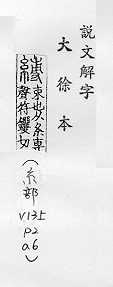 說文解字
大徐本
縛
束也从糸尃
聲符钁切
(糸部
V135
P2
a6)